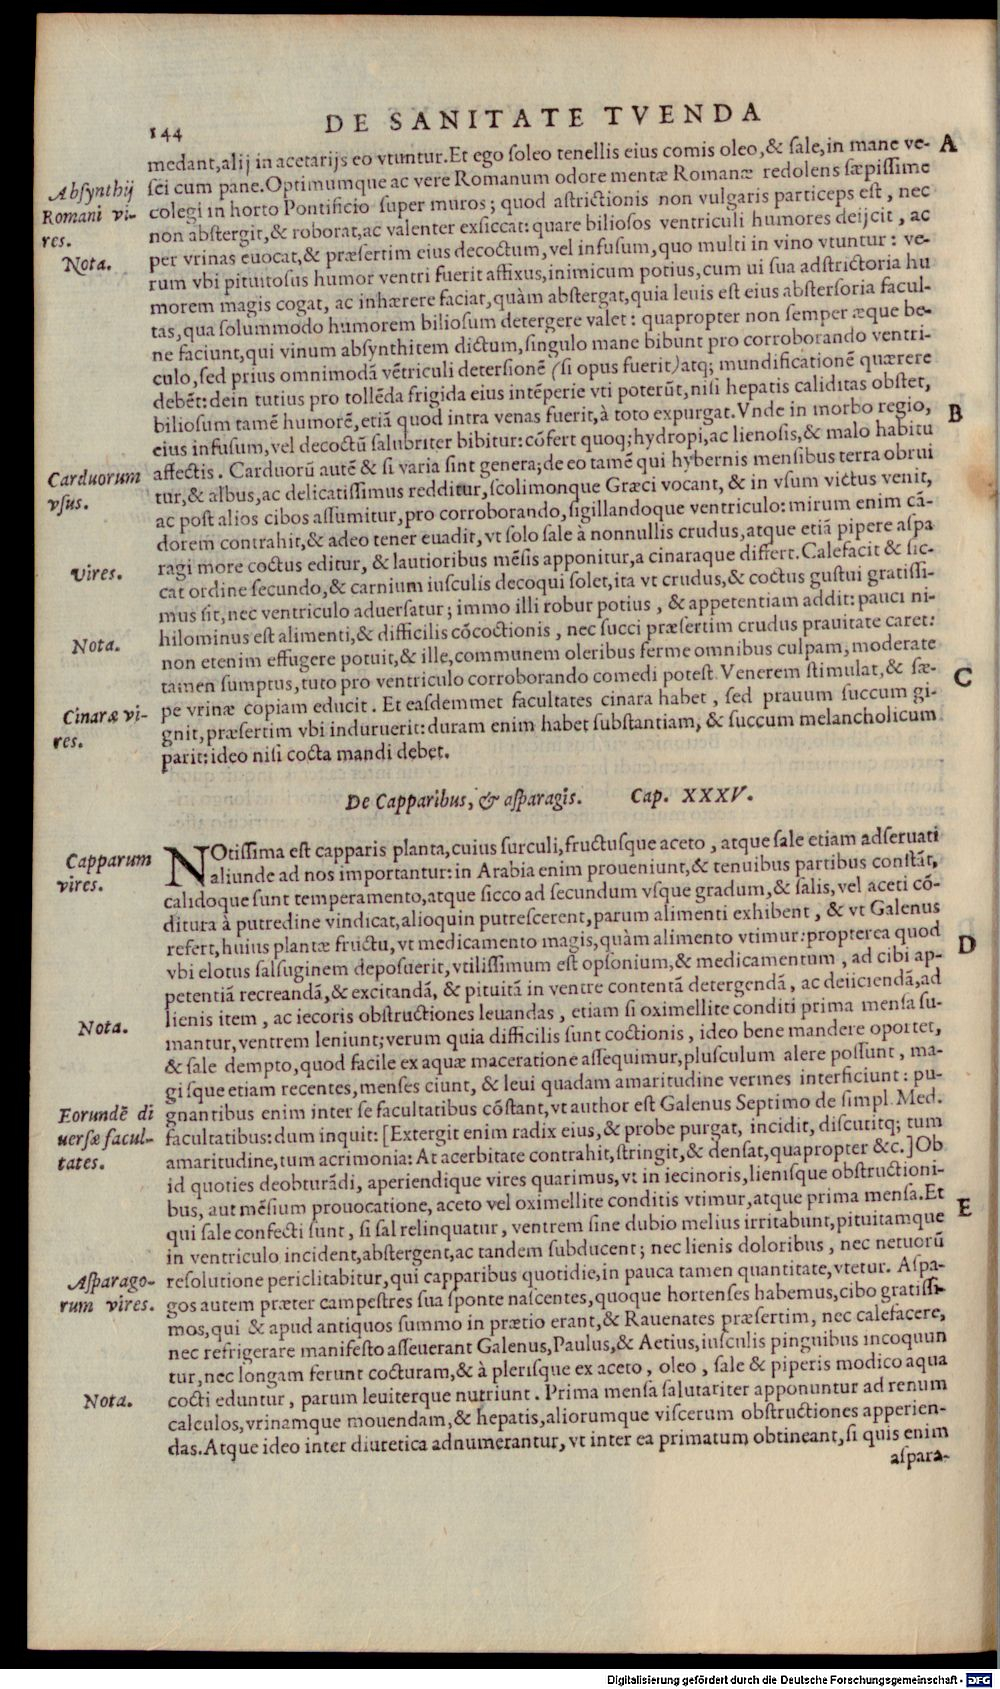 144
DE SANITATE TVENDA
medant,alij in acetarijs eo vtuntur.Et ego soleo tenellis eius comis oleo,& sale,in mane ve- A
sci cum pane.Optimumque ac vere Romanum odore mentæ Romanæ redolens sæpissime
Absynthij
Romani vi-
res.
colegi in horto Pontificio super muros; quod astrictionis non vulgaris particeps est, nec
non abstergit,& roborat,ac valenter exsiccat: quare biliosos ventriculi humores deijcit, ac
Nota.
per vrinas euocat,& præsertim eius decoctum,vel infusum,quo multi in vino vtuntur: ve-
rum vbi pituitosus humor ventri fuerit affixus,inimicum potius,cum ui sua adstrictoria hu
morem magis cogat, ac inhærere faciat,quàm abstergat,quia leuis est eius abstersoria facul-
tas,qua solummodo humorem biliosum detergere valet: quapropter non semper æque be-
ne faciunt,qui vinum absynthitem dictum,singulo mane bibunt pro corroborando ventri-
culo,sed prius omnimodã vẽtriculi detersionẽ (si opus fuerit)atq; mundificationẽ quærere
debẽt: dein tutius pro tollẽda frigida eius intẽperie vti poterũt,nisi hepatis caliditas obstet,
biliosum tamẽ humorẽ,etiã quod intra venas fuerit,à toto expurgat.Vnde in morbo regio, B
eius infusum,vel decoctũ salubriter bibitur: cõfert quoq;hydropi,ac lienosis,& malo habitu
Carduorum
vsus.
affectis. Carduorũ autẽ & si varia sint genera;de eo tamẽ qui hybernis mensibus terra obrui
tur,& albus,ac delicatissimus redditur,scolimonque Græci vocant, & in vsum victus venit,
ac post alios cibos assumitur,pro corroborando,sigillandoque ventriculo: mirum enim cã-
dorem contrahit,& adeo tener euadit,vt solo sale à nonnullis crudus,atque etiã pipere aspa
vires.
ragi more coctus editur, & lautioribus mẽsis apponitur,a cinaraque differt.Calefacit & sic-
cat ordine secundo,& carnium iusculis decoqui solet,ita vt crudus,& coctus gustui gratissi-
mus sit,nec ventriculo aduersatur; immo illi robur potius, & appetentiam addit: pauci ni-
Nota.
hilominus est alimenti,& difficilis cõcoctionis, nec succi præsertim crudus prauitate caret:
non etenim effugere potuit,& ille,communem oleribus ferme omnibus culpam; moderate
tamen sumptus,tuto pro ventriculo corroborando comedi potest. Venerem stimulat,& sæ- C
Cinaræ vi-
res.
pe vrinæ copiam educit. Et easdemmet facultates cinara habet, sed prauum succum gi-
gnit,præsertim vbi induruerit: duram enim habet substantiam, & succum melancholicum
parit: ideo nisi cocta mandi debet.
De Capparibus, & asparagis. Cap. XXXV.
Capparum
vires.
NOtissima est capparis planta,cuius surculi,fructusque aceto, atque sale etiam adseruati
aliunde ad nos importantur: in Arabia enim proueniunt,& tenuibus partibus constãt,
calidoque sunt temperamento,atque sicco ad secundum vsque gradum,& salis,vel aceti cõ-
ditura à putredine vindicat,alioquin putrescerent,parum alimenti exhibent, & vt Galenus
refert,huius plantæ fructu,vt medicamento magis,quàm alimento vtimur: propterea quod D
vbi elotus salsuginem deposuerit,vtilissimum est opsonium,& medicamentum, ad cibi ap-
petentiã recreandã,& excitandã, & pituitã in ventre contentã detergendã, ac deiiciendã,ad
Nota.
lienis item, ac iecoris obstructiones leuandas, etiam si oximellite conditi prima mensa su-
mantur,ventrem leniunt;verum quia difficilis sunt coctionis, ideo bene mandere oportet,
& sale dempto,quod facile ex aquæ maceratione assequimur,plusculum alere possunt, ma-
gisque etiam recentes,menses ciunt, & leui quadam amaritudine vermes interficiunt: pu-
Eorundẽ di
uersæ facul-
tates.
gnantibus enim inter se facultatibus cõstant,vt author est Galenus Septimo de simpl.Med.
facultatibus: dum inquit: [Extergit enim radix eius,& probe purgat, incidit, discutitq; tum
amaritudine,tum acrimonia: At acerbitate contrahit,stringit,& densat,quapropter &c.]Ob
id quoties deobturãdi, aperiendique vires quarimus,vt in iecinoris,lienisque obstructioni-
bus, aut mẽsium prouocatione, aceto vel oximellite conditis vtimur,atque prima mensa.Et
qui sale confecti sunt, si sal relinquatur, ventrem sine dubio melius irritabunt,pituitamque E
in ventriculo incident,abstergent,ac tandem subducent; nec lienis doloribus, nec neruorũ
Asparago-
rum vires.
resolutione periclitabitur,qui capparibus quotidie,in pauca tamen quantitate,vtetur. Aspa-
gos autem præter campestres sua sponte nascentes,quoque hortenses habemus,cibo gratissi-
mos,qui & apud antiquos summo in prætio erant,& Rauenates præsertim, nec calefacere,
nec refrigerare manifesto asseuerant Galenus,Paulus,& Aetius,iusculis pinguibus incoquun
tur,nec longam ferunt cocturam,& à plerisque ex aceto, oleo, sale & piperis modico aqua
Nota.
cocti eduntur, parum leuiterque nutriunt. Prima mensa salutariter apponuntur ad renum
calculos,vrinamque mouendam,& hepatis,aliorumque viscerum obstructiones apperien-
das.Atque ideo inter diuretica adnumerantur, vt inter ea primatum obtineant,si quis enim
aspara-
Digitalisierung gefördert durch die Deutsche Forschungsgemeinschaft - DFG